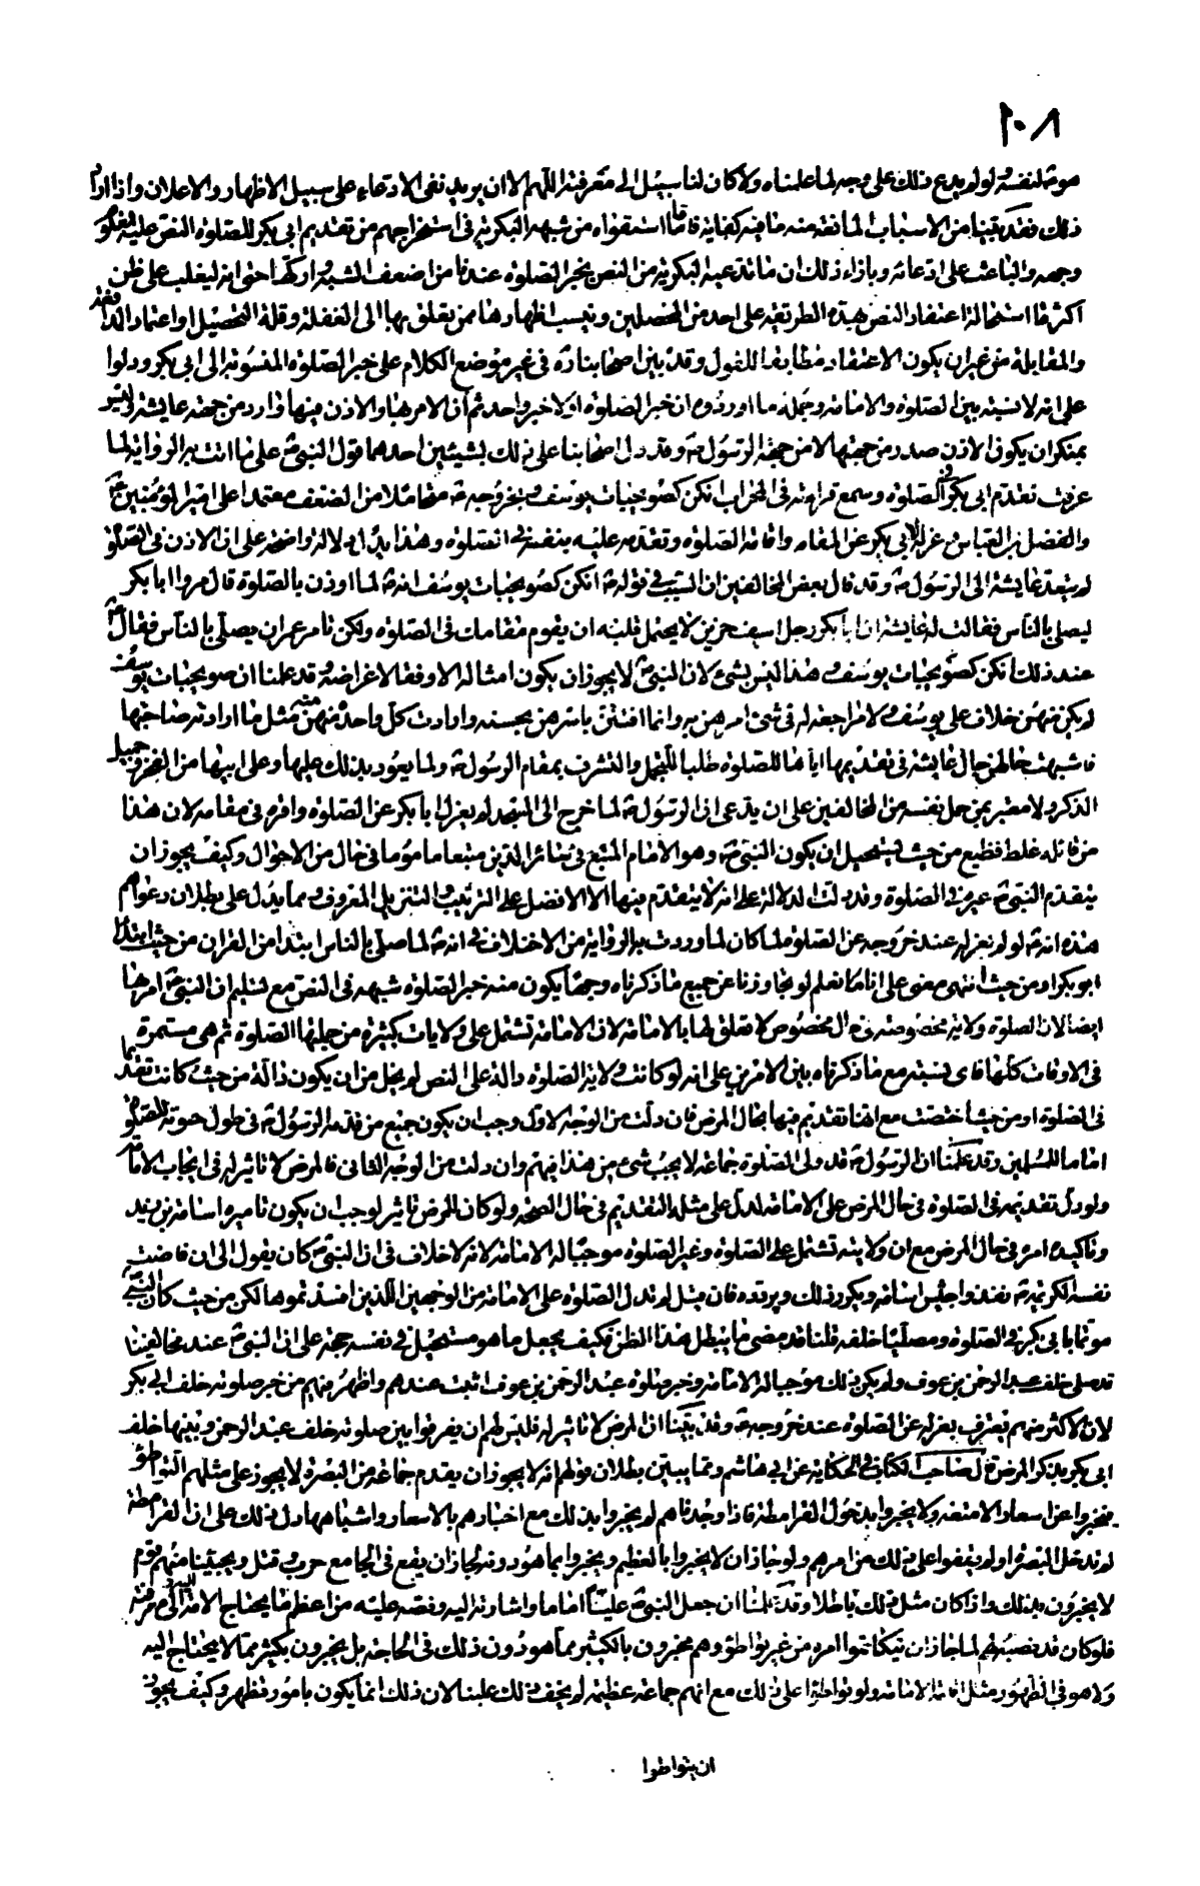 ١٠٨
موته لنفسه لو لم يدع ذلك على وجه لما علمناه ولا كان لنا سبيل الى معرفته اللهم الا ان يريد نفى الادعاء على سبيل الاظهار والاعلان واذا اراد
ذلك فقد بينا من الاسباب المانعة منه ما فيه كفاية فاما استعقواه من شبهه البكرية فى استخراجهم من تقديم ابى بكر للصلوة النص عليه فهو
وجهه والباعث على ادعائه وبازاء ذلك ان ما تدعيه البكرية من النص بخبر الصلوة عندنا من اضعف الشبه واركها حتى انه ليغلب على ظن
اكثرنا استحالة اعتقاد النص بهذه الطريقة على احد من المحصلين وينسب اظهارها ممن يعلق بها الى الغفلة وقلة التحصيل او اعتماد المدافعة
والمقابلة من غير ان يكون الاعتقاد مطابقا للقول وقد بين اصحابنا ره فى غير موضع الكلام على خبر الصلوة المنسوبة الى ابى بكر ودلوا
على انه لا نسبة بين الصلوة والامامة وجملة ما اوردوه ان خبر الصلوة اولا خبر واحد ثم ان الامر بها والاذن فيها وارد من جهة عايشة وليس
بمنكر ان يكون الاذن صدر من جهتها لا من جهة الرسول ص وقد دل اصحابنا على ذلك بشيئين احدهما قول النبى ص على ما اتت به الرواية لما
عرف تقدم ابى بكر فى الصلوة وسمع قراءته فى المحراب انكن كصويحبات يوسف وبخروجه ص متحاملا من الضعف معتمدا على امير المؤمنين ع
والفضل بن العباس عزله ابى بكر عن المقام واقامة الصلوة وتقدمه عليه بنفسه فى الصلوة وهذا يدل دلالة واضحة على ان الاذن فى الصلوة
لم يتعد عايشة الى الرسول ص وقد قال بعض المخالفين ان السبب فى قوله ص انكن كصويحبات يوسف انه ص لما اوذن بالصلوة قال مروا ابا بكر
ليصلى بالناس فقالت له عايشة ان ابا بكر رجل اسيف حزين لا يحتمل قلبه ان يقوم مقامك فى الصلوة ولكن تامر عمر ان يصلى بالناس فقال ص
عند ذلك انكن كصويحبات يوسف وهذا ليس بشىء لان النبى ص لا يجوز ان يكون امثاله الا وفقا لاغراضه وقد علمنا ان صويحبات يوسف
لم يكن منهن خلاف على يوسف ولا مراجعة له فى شىء امرهن به وانما افتتن باسرهن بحسنه وارادت كل واحدة منهن منه مثل ما ارادته صاحبتها
فاشبهت حالهن حال عايشة فى تقديمها اباها للصلوة طلبا للتجمل والتشرف بمقام الرسول ص ولما يعود بذلك عليها وعلى ابيها من الفخر وجميل
الذكر ولا معتبر بمن حمل نفسه من المخالفين على ان يدعى ان الرسول ص لما خرج الى المسجد لم يعزل ابا بكر عن الصلوة واقره فى مقامه لان هذا
من قائله غلط فظيع من حيث يستحيل ان يكون النبى ص وهو الامام المتبع فى سائر الدين متبعا ماموما فى حال من الاحوال وكيف يجوز ان
يتقدم النبى ص غيره فى الصلوة وقد دلت الدلالة على انه لا يتقدم فيها الا الافضل على الترتيب والتنزيل المعروف ومما يدل على بطلان دعواهم
هذه انه ص لو لم يعزله عند خروجه عن الصلوة لما كان لما وردت به الرواية من الاختلاف فى انه ص لما صلى بالناس ابتدا من القران من حيث ابتدا
ابو بكر او من حيث انتهى معنى على انا ما نعلم لو تجاوزنا عن جميع ما ذكرناه وجها يكون منه خبر الصلوة شبهه فى النص مع تسليم ان النبى ص امر بها
ايضا لان الصلوة ولاية مخصوصة فى حال مخصوص لا تعلق لها بالامامة لان الامامة تشتمل على ولايات كثيرة من جملتها الصلوة ثم هى مستمرة
فى الاوقات كلها فاى نسبة مع ما ذكرناه بين الامرين على انه لو كانت ولاية الصلوة دالة على النص لم يخل من ان يكون دالة من حيث كانت تقديما
فى الصلوة او من حيث اختصت مع انها تقديم فيها بحال المرض فان دلت من الوجه الاول وجب ان يكون جميع من قدمه الرسول ص فى طول حيوته للصلوة
اماما للمسلمين وقد علمنا ان الرسول ص قد ولى الصلوة جماعة لا يجب شىء من هذا فيهم وان دلت من الوجه الثانى فالمرض لا تاثير له فى ايجاب الامامة
ولو دل تقديمه فى الصلوة فى حال المرض على الامامة لدل على مثله التقديم فى حال الصحة ولو كان للمرض تاثير لوجب ان يكون تاميره اسامة بن زيد
وتاكيده امره فى حال المرض مع ان ولايته تشتمل على الصلوة وغير الصلوة موجبا له الامامة لانه لا خلاف فى ان النبى ص كان يقول الى ان فاضت
نفسه الكريمة ص نفذوا جيش اسامة ويكرر ذلك ويردده فان قيل لم تدل الصلوة على الامامة من الوجهين اللذين افسدتموهما لكن من حيث كان النبى ص
مؤتما بابى بكر فى الصلوة ومصليا خلفه قلنا قد مضى ما يبطل هذا الظن فكيف يجعل ما هو مستحيل فى نفسه حجة على ان النبى ص عند مخالفينا
قد صلى خلف عبد الرحمن بن عوف ولم يكن ذلك موجبا له الامامة وخبر صلوة عبد الرحمن بن عوف اثبت عندهم واظهر فيهم من خبر صلوته خلف ابى بكر
لان الاكثر منهم يعترف بعزله عن الصلوة عند خروجه ص وقد بينا ان المرض لا تاثير له فليس لهم ان يفرقوا بين صلوته خلف عبد الرحمن وبينها خلف
ابى بكر بذكر المرض قال صاحب الكتاب فى الحكاية عن ابى هاشم ومما يبين بطلان قولهم انه لا يجوز ان يقدم جماعة من البصرة لا يجوز على مثلهم التواطؤ
فيخبروا عن اسعار الامتعة ولا يخبروا بدخول القرامطة فاذا وجدناهم لم يخبروا بذلك مع اخبارهم بالاسعار واشباهها دل ذلك على ان القرامطة
لم تدخل البصرة او لم يقفوا على ذلك من امرهم ولو جاز ان لا يخبروا بالعظيم ويخبروا بما هو دونه لجاز ان يقع فى الجامع حروب وقتل ويجيئنا منهم قوم
لا يخبرون بذلك واذا كان مثل ذلك باطلا وقد علمنا ان جعل النبى ص عليا اماما واشارته اليه ونصه عليه من اعظم ما يحتاج الامة الى معرفته
فلو كان قد نصبه لهم لما جاز ان يتكاتموا امره من غير تواطؤ وهم مخبرون بالكثير مما هو دون ذلك فى الحاجة بل يخبرون بكثير مما لا يحتاج اليه
ولا هو فى الظهور مثل اقامة الامامة ولو تواطئوا على ذلك مع انهم جماعة عظيمة لم يخف ذلك علينا لان ذلك انما يكون بامور تظهر وكيف يجوز
ان يتواطئوا